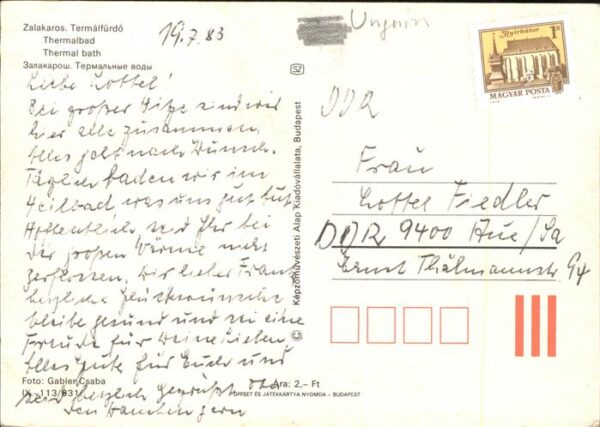 Zalakaros. Termálfürdő
Thermalbad
Thermal bath
Залакарош. Термальные воды
19.7.83
Ungarn
Nyírbátor
1Ft
MAGYAR POSTA
SZ
Liebe Lottel!
Bei großer Hitze sind wir
hier alle zusammen.
Alles geht nach Wunsch.
Täglich baden wir im
Heilbad was uns gut tut
Hoffentlich seid Ihr bei
der großen Wärme nicht
zerflossen. Dir lieber Frank
herzliche Glückwünsche
bleibe gesund und sei eine
Freude für Deine Lieben
Alles gute für Euch und
seid herzlich gegrüßt
von
DDR
Frau
Lottel Fiedler
DDR 9400 Aue/Sa
Ernst Thälmannstr 94
Képzőművészeti Alap Kiadóvállalata, Budapest
Foto: Gabler Csaba
IX-113/831
Ára: 2,– Ft
OFFSET ÉS JÁTÉKKÁRTYA NYOMDA – BUDAPEST